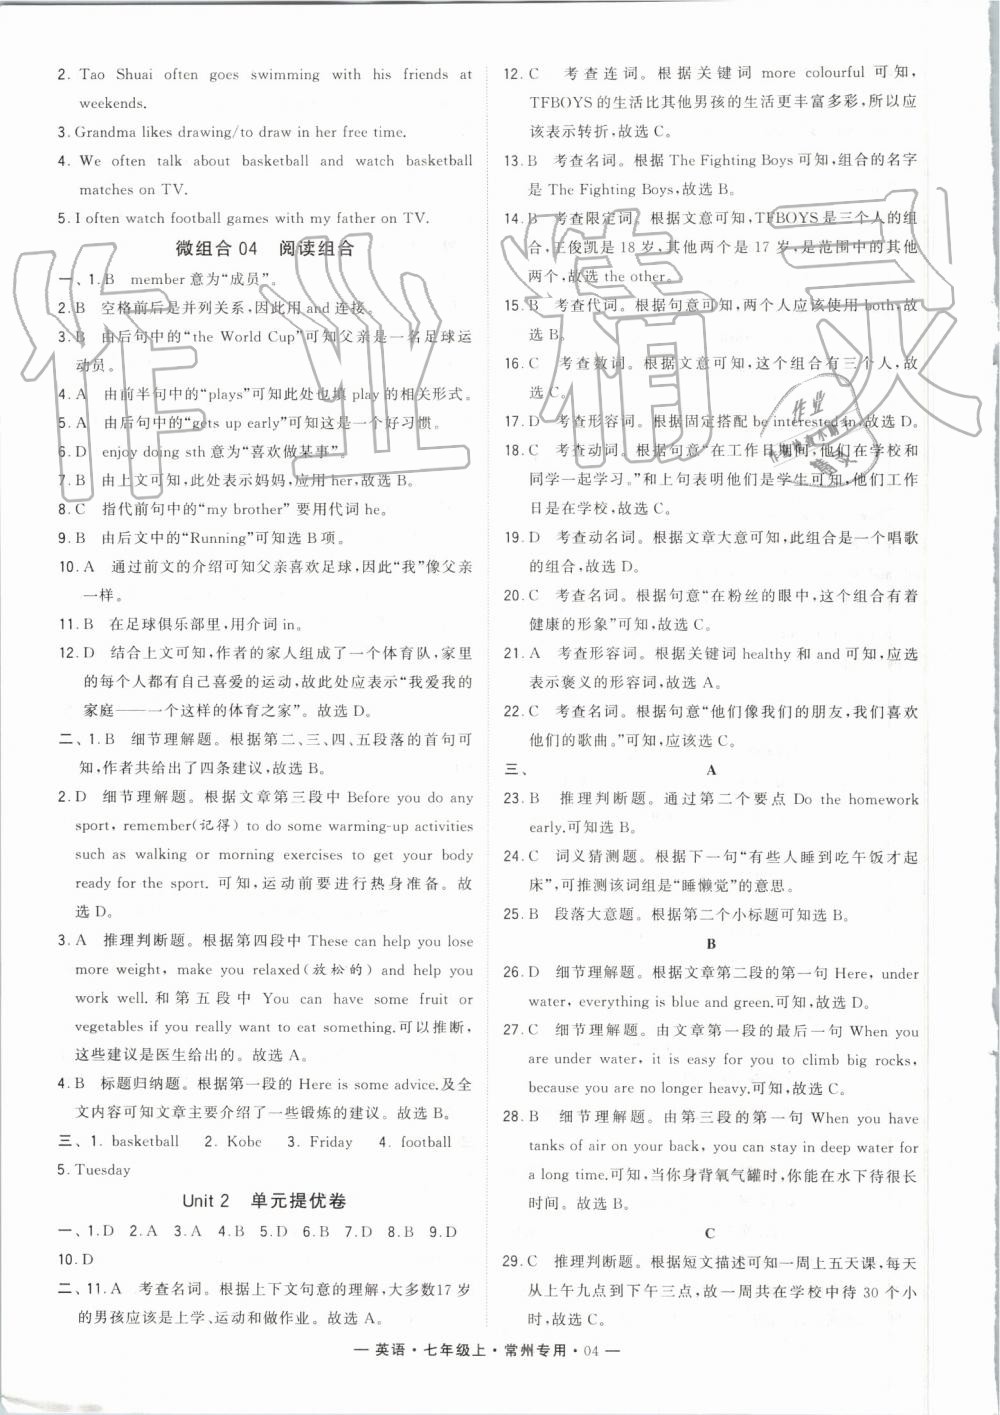 2. Tao Shuai often goes swimming with his friends at
weekends.
3. Grandma likes drawing/to draw in her free time.
4. We often talk about basketball and watch basketball
matches on TV.
5. I often watch football games with my father on TV.
微组合 04 阅读组合
一、1. B member意为“成员”。
2. B 空格前后是并列关系,因此用 and 连接。
3. B 由后句中的“the World Cup”可知父亲是一名足球运
动员。
4. A 由前半句中的“plays”可知此处也填 play 的相关形式。
5. A 由后句中的“gets up early”可知这是一个好习惯。
6. D enjoy doing sth 意为“喜欢做某事”。
7. B 由上文可知,此处表示妈妈,应用 her,故选 B。
8. C 指代前句中的“my brother” 要用代词 he。
9. B 由后文中的“Running”可知选 B项。
10. A 通过前文的介绍可知父亲喜欢足球,因此“我”像父亲
一样。
11. B 在足球俱乐部里,用介词 in。
12. D 结合上文可知,作者的家人组成了一个体育队,家里
的每个人都有自己喜爱的运动,故此处应表示“我爱我的
家庭——一个这样的体育之家”。故选 D。
二、1. B 细节理解题。根据第二、三、四、五段落的首句可
知,作者共给出了四条建议,故选 B。
2. D 细节理解题。根据文章第三段中 Before you do any
sport, remember(记得) to do some warming-up activities
such as walking or morning exercises to get your body
ready for the sport. 可知,运动前要进行热身准备。故
选 D。
3. A 推理判断题。根据第四段中 These can help you lose
more weight, make you relaxed(放松的) and help you
work well. 和第五段中 You can have some fruit or
vegetables if you really want to eat something.可以推断,
这些建议是医生给出的。故选 A。
4. B 标题归纳题。根据第一段的 Here is some advice.及全
文内容可知文章主要介绍了一些锻炼的建议。故选 B。
三、1. basketball 2. Kobe 3. Friday 4. football
5. Tuesday
Unit 2 单元提优卷
一、1. D 2. A 3. A 4. B 5. D 6. B 7. D 8. B 9. D
10. D
二、11. A 考查名词。根据上下文句意的理解,大多数17 岁
的男孩应该是上学、运动和做作业。故选 A。
12. C 考查连词。根据关键词 more colourful 可知,
TFBOYS 的生活比其他男孩的生活更丰富多彩,所以应
该表示转折,故选 C。
13. B 考查名词。根据 The Fighting Boys 可知,组合的名字
是 The Fighting Boys,故选 B。
14. B 考查限定词。根据文意可知,TFBOYS 是三个人的组
合,王俊凯是 18 岁,其他两个是 17 岁,是范围中的其他
两个,故选 the other。
15. B 考查代词。根据句意可知,两个人应该使用 both,故
选 B。
16. C 考查数词。根据文意可知,这个组合有三个人,故
选 C。
17. D 考查形容词。根据固定搭配 be interested in,故选 D。
18. C 考查动词。根据句意“在工作日期间,他们在学校和
同学一起学习。”和上句表明他们是学生可知,他们工作
日是在学校,故选 C。
19. D 考查动名词。根据文章大意可知,此组合是一个唱歌
的组合,故选 D。
20. C 考查名词。根据句意“在粉丝的眼中,这个组合有着
健康的形象”可知,故选 C。
21. A 考查形容词。根据关键词 healthy 和 and 可知,应选
表示褒义的形容词,故选 A。
22. C 考查名词。根据句意“他们像我们的朋友,我们喜欢
他们的歌曲。”可知,应该选 C。
三、 A
23. B 推理判断题。通过第二个要点 Do the homework
early.可知选 B。
24. C 词义猜测题。根据下一句“有些人睡到吃午饭才起
床”,可推测该词组是“睡懒觉”的意思。
25. B 段落大意题。根据第二个小标题可知选 B。
B
26. D 细节理解题。根据文章第二段的第一句 Here, under
water, everything is blue and green.可知,故选 D。
27. C 细节理解题。由文章第一段的最后一句 When you
are under water, it is easy for you to climb big rocks,
because you are no longer heavy.可知,故选 C。
28. B 细节理解题。由第三段的第一句 When you have
tanks of air on your back, you can stay in deep water for
a long time.可知,当你身背氧气罐时,你能在水下待很长
时间。故选 B。
C
29. C 推理判断题。根据短文描述可知一周上五天课,每天
从上午九点到下午三点,故一周共在学校中待 30 个小
时,故选 C。
— 英语·七年级上·常州专用·04 —
作业精灵